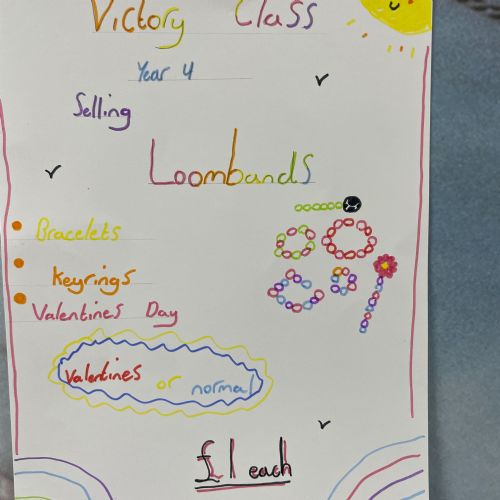 Victory Class
Year 4
Selling
Loombands
Bracelets
Keyrings
Valentines Day
Valentines or normal
£1 each